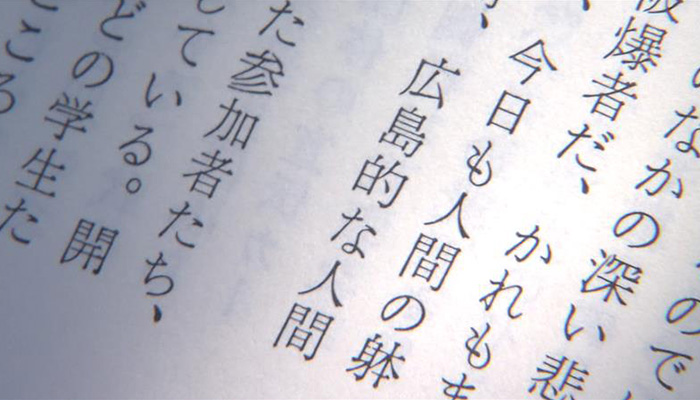 ので
のなかの深い悲
被爆者だ、かれもま
、今日も人間の躰
広島的な人間
た参加者たち、
している。開
どの学生た
ころ